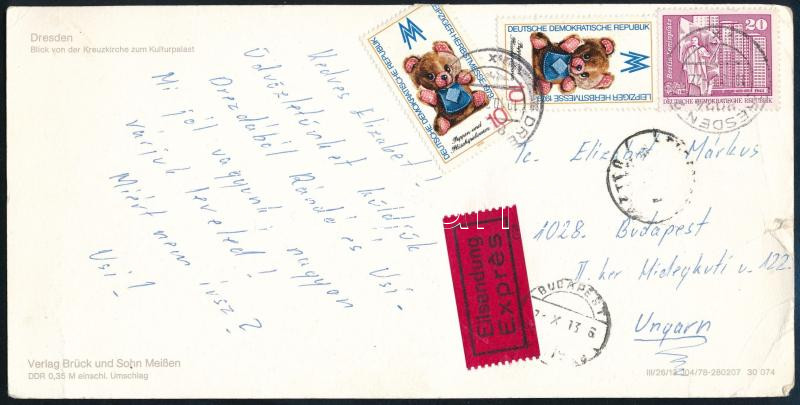 Dresden
Blick von der Kreuzkirche zum Kulturpalast
Kedves Elizabet!
Üdvözletünket küldjük
Drezdából Ránde és Usi.
Mi jól vagyunk, nagyon
várjuk leveled!
Miért nem írsz?
Usi!
DEUTSCHE DEMOKRATISCHE REPUBLIK
LEIPZIGER HERBSTMESSE
10
Puppen und
Plüschspielwaren
DEUTSCHE DEMOKRATISCHE REPUBLIK
LEIPZIGER HERBSTMESSE
20
DEUTSCHE DEMOKRATISCHE REPUBLIK
DRESDEN
Elizabet Márkus
1028. Budapest
II. ker Hidegkuti u 122.
Ungarn
Eilsendung
Exprès
BUDAPEST
X 13
Verlag Brück und Sohn Meißen
DDR 0,35 M einschl. Umschlag
30 074